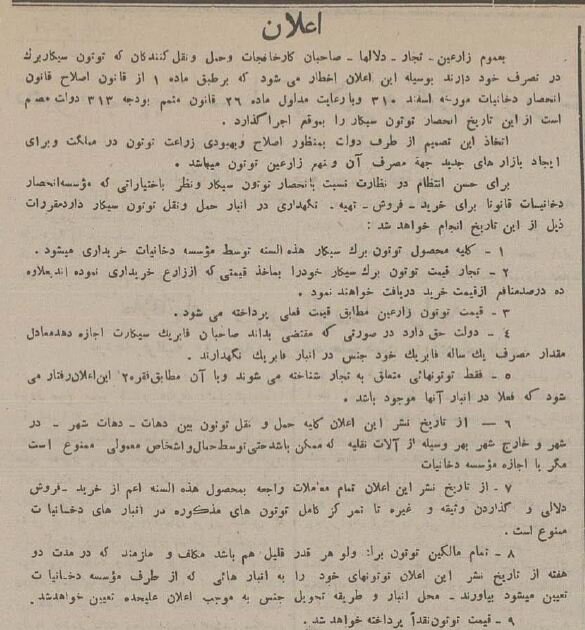 اعلان
بعموم زارعین ـ تجار ـ دلالها ـ صاحبان کارخانجات وحمل ونقل کنندگان که توتون سیکاربرك
در تصرف خود دارند بوسیله این اعلان اخطار می شود که برطبق ماده ۱ از قانون اصلاح قانون
انحصار دخانیات مورخه اسفند ۳۱۰ وبا رعایت مدلول ماده ۲۶ قانون متمم بودجه ۳۱۳ دولت مصمم
است از این تاریخ انحصار توتون سیکار را بموقع اجرا گذارد .
اتخاذ این تصمیم از طرف دولت بمنظور اصلاح وبهبودی زراعت توتون در مملکت وبرای
ایجاد بازار های جدید جهة مصرف آن و بنفع زارعین توتون میباشد .
برای حسن انتظام در نظارت نسبت بانحصار توتون سیکار ونظر باختیاراتی که مؤسسه انحصار
دخانیات قانونا برای خرید ـ فروش ـ تهیه ـ نگهداری در انبار حمل ونقل توتون سیکار دارد مقررات
ذیل از این تاریخ انجام خواهد شد :
۱ ـ کلیه محصول توتون برك سیکار هذه السنه توسط مؤسسه دخانیات خریداری میشود .
۲ ـ تجار قیمت توتون برك سیکار خودرا بماخذ قیمتی که از زارع خریداری نموده اند بعلاوه
ده درصد منافع از قیمت خرید دریافت خواهند نمود .
۳ ـ قیمت توتون زارعین مطابق قیمت فعلی پرداخته می شود .
٤ ـ دولت حق دارد در صورتی که مقتضی بداند صاحبان فابریك سیکارت اجازه دهد معادل
مقدار مصرف یك ساله فابریك خود جنس در انبار فابریك نگهدارند .
٥ ـ فقط توتونهائی متعلق به تجار شناخته می شوند وبا آن مطابق فقره ۲ این اعلان رفتار می
شود که فعلا در انبار آنها موجود باشد .
۶ ـ از تاریخ نشر این اعلان کلیه حمل و نقل توتون بین دهات ـ دهات شهر ـ در
شهر و خارج شهر بهر وسیله از آلات نقلیه که ممکن باشد حتی توسط حمال واشخاص معمولی ممنوع است
مگر با اجازه مؤسسه دخانیات
۷ ـ از تاریخ نشر این اعلان تمام معاملات راجعه بمحصول هذه السنه اعم از خرید ـ فروش
دلالی و گذاردن وثیقه و غیره تا تمرکز کامل توتون های مذکوره در انبار های دخانیات
ممنوع است .
۸ ـ تمام مالکین توتون برك ولو هر قدر قلیل هم باشد مکلف و ملزمند که در مدت دو
هفته از تاریخ نشر این اعلان توتونهای خود را به انبار هائی که از طرف مؤسسه دخانیات
تعیین میشود بیاورند ـ محل انبار و طریقه تحویل جنس به موجب اعلان علیحده تعیین خواهد شد .
۹ ـ قیمت توتون نقداً پرداخته خواهد شد .